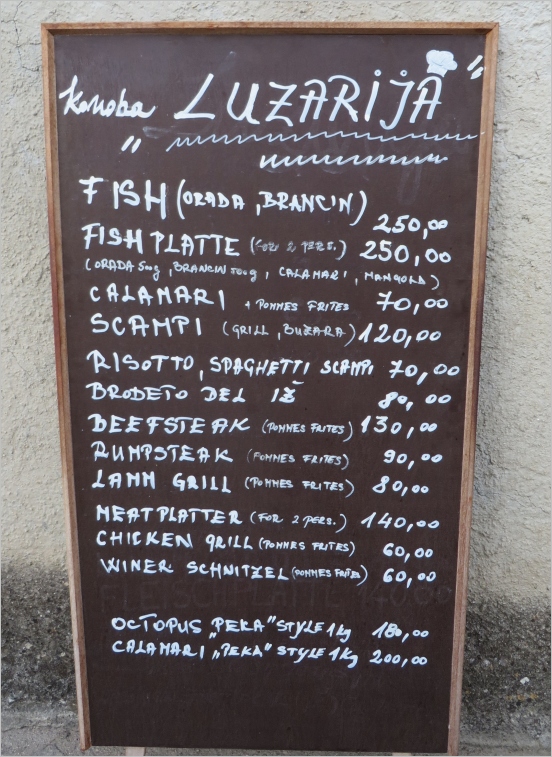 Konoba LUZARIJA
"
FISH (ORADA, BRANCIN) 250,00
FISH PLATTE (FOR 2 PERS.) 250,00
(ORADA 500g, BRANCIN 500g, CALAMARI, MANGOLD)
CALAMARI + POMMES FRITES 70,00
SCAMPI (GRILL, BUZARA) 120,00
RISOTTO, SPAGHETTI SCAMPI 70,00
BRODETO DEL IŽ 80,00
BEEFSTEAK (POMMES FRITES) 130,00
RUMPSTEAK (POMMES FRITES) 90,00
LAMM GRILL (POMMES FRITES) 80,00
MEATPLATTER (FOR 2 PERS.) 140,00
CHICKEN GRILL (POMMES FRITES) 60,00
WINER SCHNITZEL (POMMES FRITES) 60,00
FLEISCHPLATTE 140,00
OCTOPUS „PEKA" STYLE 1kg 180,00
CALAMARI „PEKA" STYLE 1kg 200,00